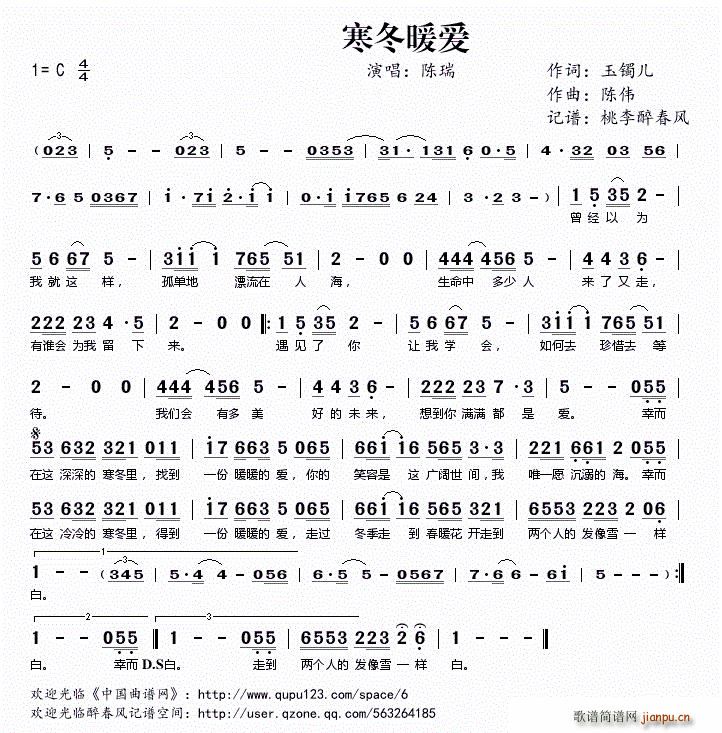 寒冬暖爱
1= C 4/4
演唱：陈瑞
作词：玉镯儿
作曲：陈伟
记谱：桃李醉春风
( 023 | 5 - - 023 | 5 - - 0353 | 31· 131 6 0·5 | 4·32 03 56 |
7·6 5 0367 | i·7i 2·i i | 0·i i765 6 24 | 3 ·23 - ) | 1 5 35 2 - |
曾经以 为
5 6 67 5 - | 3ii i 765 51 | 2 - 0 0 | 444 4565 - | 4 4 3 6 - |
我就这 样， 孤单地 漂流在 人 海， 生命中 多少人 来了又走，
222 23 4·5 | 2 - 0 0 |: 1 5 35 2 - | 5 6 67 5 - | 3ii i 765 51 |
有谁会为我留 下 来。 遇见了 你 让我学 会， 如何去 珍惜去 等
2 - 0 0 | 444 456 5 - | 4 4 3 6 - | 222 23 7·3 | 5 - - 055 |
待。 我们会 有多 美 好的未来， 想到你满满都 是 爱。 幸而
53 632 321 011 | i7 663 5 065 | 661 i 765 3·3 | 221 661 2 055 |
在这 深深的 寒冬里，找到 一份 暖暖的 爱，你的 笑容是 这 广阔世 间，我 唯一愿 沉溺的 海。幸而
53 632 321 011 | i7 663 5 065 | 661 i 765 3 033 | 6553 223 2 06 |
在这 冷冷的 寒冬里，得到 一份 暖暖的 爱，走过 冬季走 到 春暖花 开走到 两个人的 发像雪 一 样
1 - - ( 345 | 5·4 4 - 056 | 6·5 5 - 0567 | 7·6 6 - 6i | 5 - - - ) :|
白。
1 - - 055 | 1 - - 055 | 6553 223 2 6 | 1 - - - |
白。 幸而 D.S白。 走到 两个人的 发像雪 一样 白。
欢迎光临《中国曲谱网》：http://www.qupu123.com/space/6
欢迎光临醉春风记谱空间：http://user.qzone.qq.com/563264185
歌谱简谱网
jianpu.cn